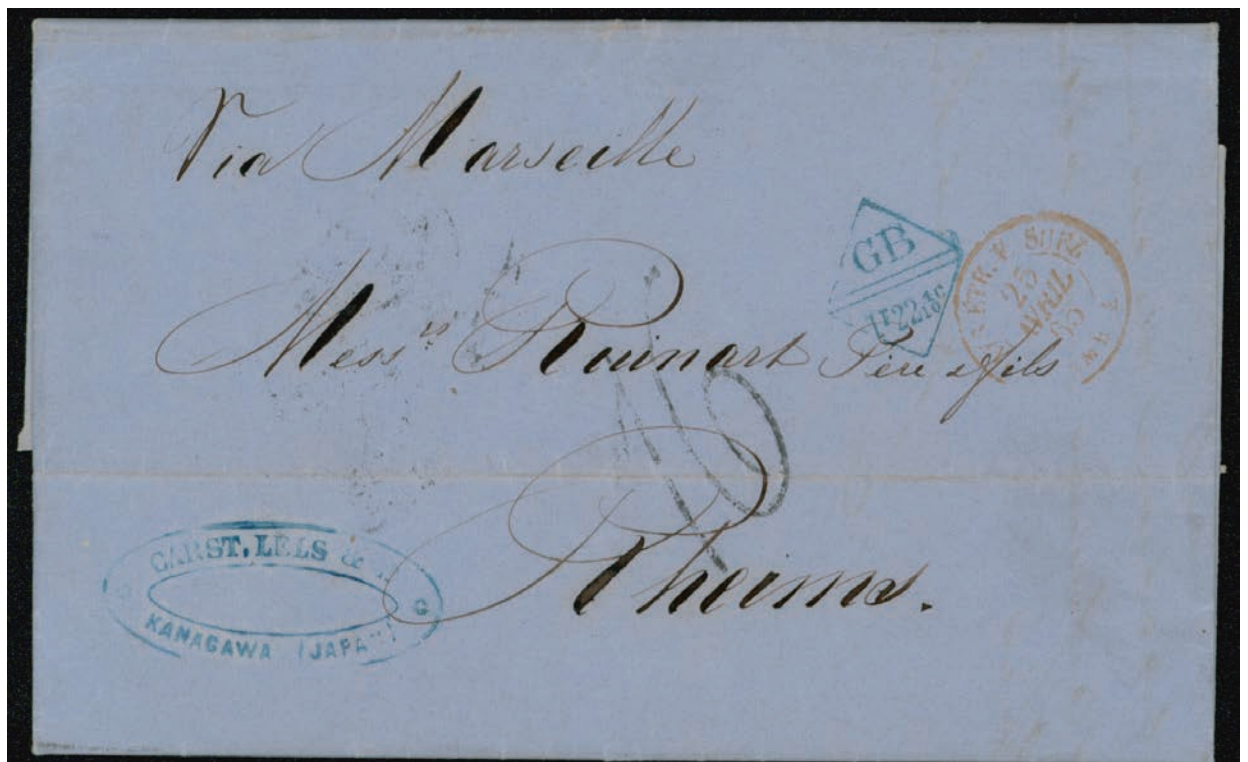 Via Marseille
GB
1F22 4/10C
ETR. V. SUEZ
25
AVRIL
65
Mess rs Ruinart Père & fils
10
Rheims.
CARST. LELS &
KANAGAWA (JAPAN)